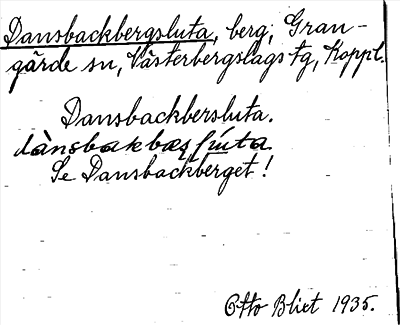 Dansbackbergsluta, berg, Gran-
gärde sn, Västerbergslags tg, Koppl.
Dansbackbersluta.
Se Dansbackberget!
Otto Blixt 1935.